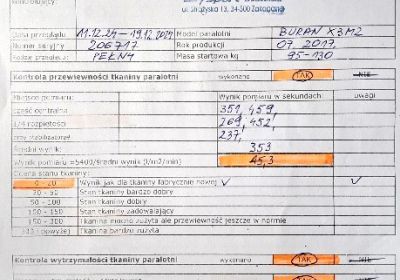 kontrolujący:
ul. Strążyska 13, 34-500 Zakopane
Data przeglądu 11.12.24 – 19.12.2024 Model paralotni BURAN X3.M2
Numer seryjny 206717 Rok produkcji 07.2017
Rodzaj przeglądu PEŁNY Masa startowa kg 95-130
Kontrola przewiewności tkaniny paralotni wykonano TAK NIE
Miejsce pomiaru: Wynik pomiaru w sekundach: uwagi
część centralna 351, 459,
1/4 rozpiętości 269, 452,
przy stabilizatorze 237,
Średni wynik: 353
Wynik pomiaru =5400/średni wynik (l/m2/min) 45,3
Ocena stanu tkaniny:
0 - 20 Wynik jak dla tkaniny fabrycznie nowej V V
20 - 50 Stan tkaniny bardzo dobry
50 - 100 Stan tkaniny dobry
100 - 150 Stan tkaniny zadowalający
150 - Tkanina mocno zużyta ale przewiewność jeszcze w normie
powyżej Tkanina bardzo zużyta
Kontrola wytrzymałości tkaniny paralotni wykonano TAK NIE